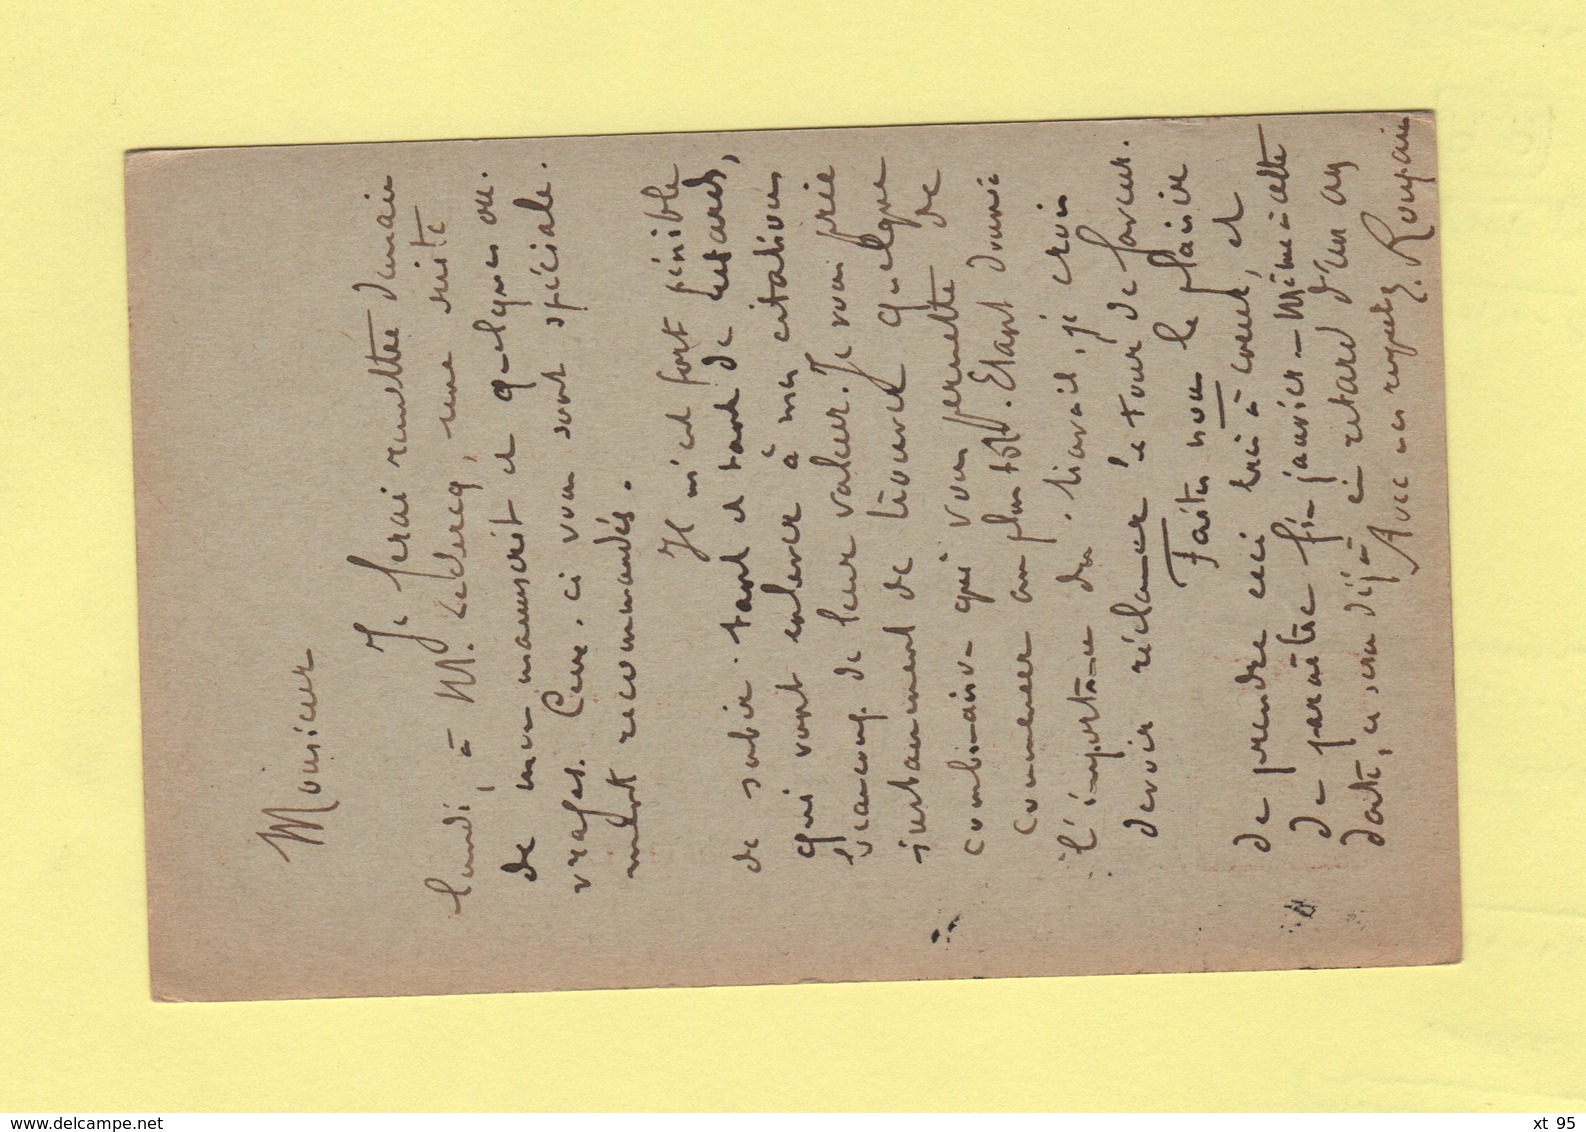 Monsieur
Je ferai remettre demain
lundi, à M. Leclercq, une suite
de mon manuscrit et quelques ou-
vrages. Ceux-ci vous sont spéciale-
ment recommandés.
Il m'est fort pénible
de subir tant et tant de retards,
qui vont enlever à mes citations
beaucoup de leur valeur. Je vous prie
instamment de trouver quelque
combinaison qui vous permette de
commencer au plus tôt. Etant donné
l'importance du travail, je crois
devoir réclamer le tour de faveur.
Faites nous le plaisir
de prendre ceci bien à coeur, et
de paraître fin janvier - Même à cette
date, ce sera déjà en retard d'un an
Avec mes respects
www.delcampe.net
xt 95